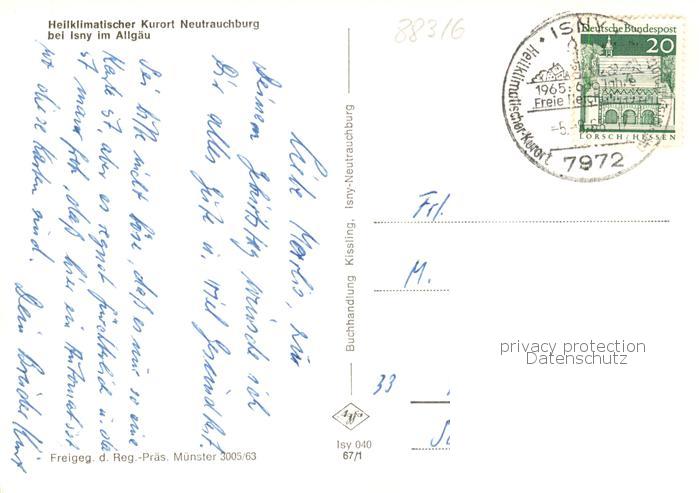 Heilklimatischer Kurort Neutrauchburg
bei Isny im Allgäu
88316
Liebe Marlis, zum
Deinem Geburtstag wünsche ich
Dir alles Gute u. viel Gesundheit.
Sei bitte nicht böse, daß es nur so eine
Karte ist, aber es regnet fürchterlich u. da
ist man froh, daß hier ein Automat ist
wo diese Karten sind. Dein Bruder Kurt
Freigeg. d. Reg.-Präs. Münster 3005/63
Buchhandlung Kissling, Isny-Neutrauchburg
Agfa
Isy 040
67/1
ISNY
Heilklimatischer-Kurort
1965: 600 Jahre
Freie Reichs
7972
Deutsche Bundespost
20
LORSCH/HESSEN
Frl.
M.
33
privacy protection
Datenschutz